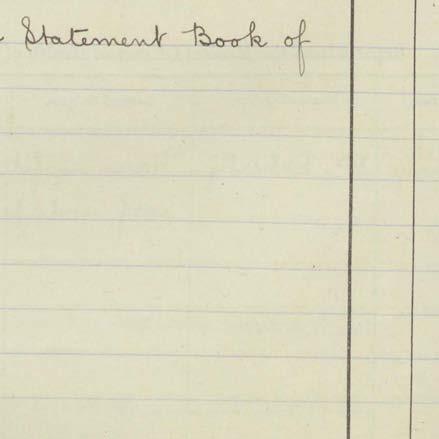 Statement Book of